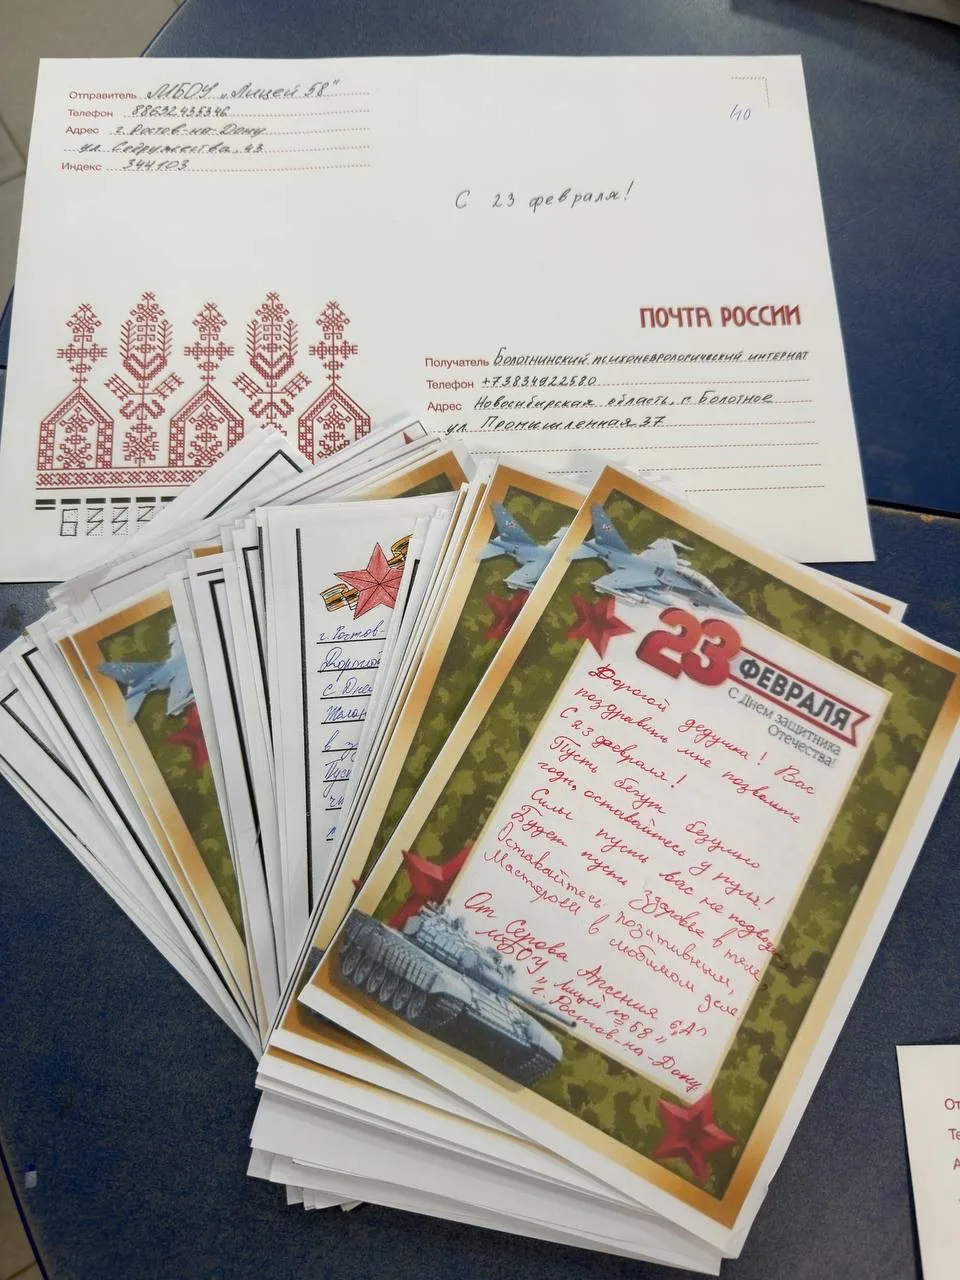 Отправитель МБОУ „Лицей 58"
Телефон 88632435346
Адрес г. Ростов-на-Дону
ул. Содружества, 43
Индекс 344103
1/10
С 23 февраля!
ПОЧТА РОССИИ
Получатель Болотнинский психоневрологический интернат
Телефон +73834922580
Адрес Новосибирская область, г. Болотное
ул. Промышленная 37
г. Ростов-
с Днем
23
ФЕВРАЛЯ
С Днем защитника
Отечества!
Дорогой дедушка! Вас
поздравить мне позвольте
С 23 февраля!
Пусть бегут безумно
годы, оставайтесь у руля!
Силы пусть вас не подводят
Будет пусть здоровье в теле,
Оставайтесь позитивным,
Мастером в любимом деле.
От Серова Арсения 6„А"
МБОУ „Лицей №58"
г. Ростов-на-Дону
От
Те
А